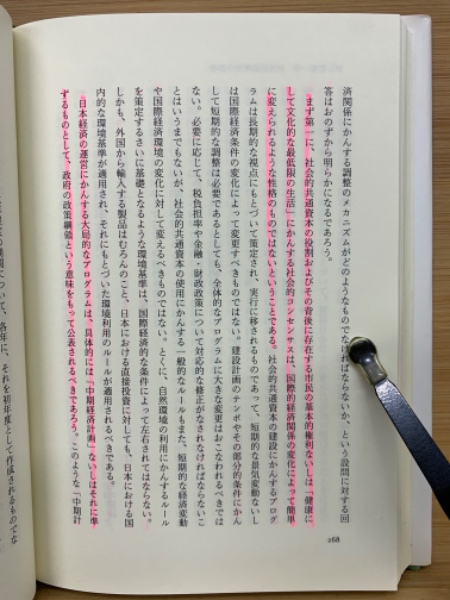 済関係にかんする調整のメカニズムがどのようなものでなければならないか、という設問に対する回
答はおのずから明らかになるであろう。
まず第一に、社会的共通資本の役割およびその背後に存在する市民の基本的権利ないしは「健康に
して文化的な最低限の生活」にかんする社会的コンセンサスは、国際的経済関係の変化によって簡単
に変えられるような性格のものではないということである。社会的共通資本の建設にかんするプログ
ラムは長期的な視点にもとづいて策定され、実行に移されるものであって、短期的な景気変動ないし
は国際経済条件の変化によって変更すべきものではない。建設計画のテンポやその部分的条件にかん
して短期的な調整は必要であるとしても、全体的なプログラムに大きな変更はおこなわれるべきでは
ない。必要に応じて、税負担率や金融・財政政策について対応的な修正がなされなければならないこ
とはいうまでもないが、社会的共通資本の使用にかんする一般的なルールもまた、短期的な経済変動
や国際経済環境の変化に対して変えるべきものではない。とくに、自然環境の利用にかんするルール
を策定するさいに基礎となるような環境基準は、国際経済的な条件によって左右されてはならない。
しかも、外国から輸入する製品はむろんのこと、日本における直接投資に対しても、日本における国
内的な環境基準が適用され、それにもとづいた環境利用のルールが適用されるべきである。
日本経済の運営にかんする大局的なプログラムは、具体的には「中期経済計画」ないしはそれに準
ずるものとして、政府の政策綱領という意味をもって公表されるべきであろう。このような「中期計
268
について、各年に、それを初年度として作成されるものでな